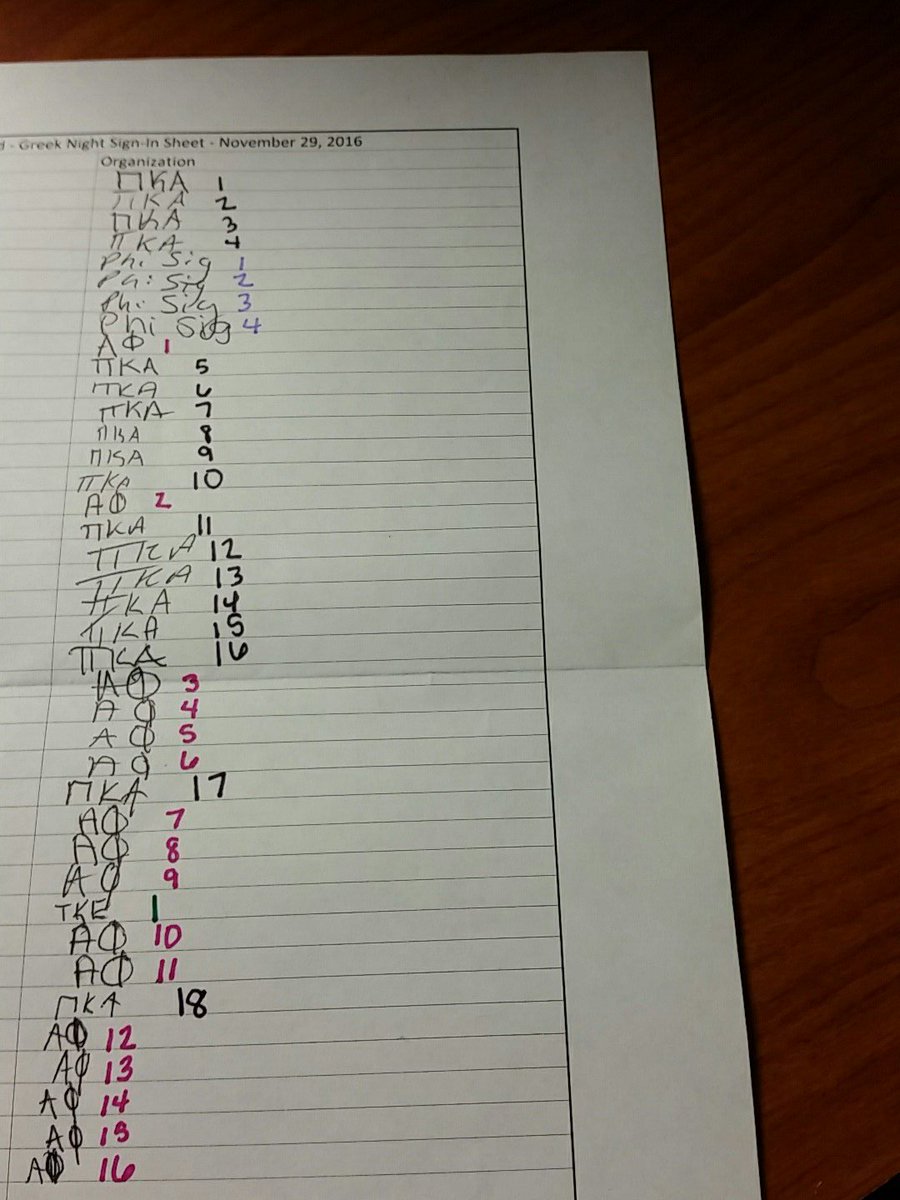 - Greek Night Sign-In Sheet - November 29, 2016
Organization
ΠΚΑ 1
ΠΚΑ 2
ΠΚΑ 3
ΠΚΑ 4
Phi Sig 1
Phi Sig 2
Phi Sig 3
Phi Sig 4
ΑΦ 1
ΠΚΑ 5
ΠΚΑ 6
ΠΚΑ 7
ΠΚΑ 8
ΠΚΑ 9
ΠΚΑ 10
ΑΦ 2
ΠΚΑ 11
ΠΚΑ 12
ΠΚΑ 13
ΠΚΑ 14
ΠΚΑ 15
ΠΚΑ 16
ΑΦ 3
ΑΦ 4
ΑΦ 5
ΑΦ 6
ΠΚΑ 17
ΑΦ 7
ΑΦ 8
ΑΦ 9
ΤΚΕ 1
ΑΦ 10
ΑΦ 11
ΠΚΑ 18
ΑΦ 12
ΑΦ 13
ΑΦ 14
ΑΦ 15
ΑΦ 16